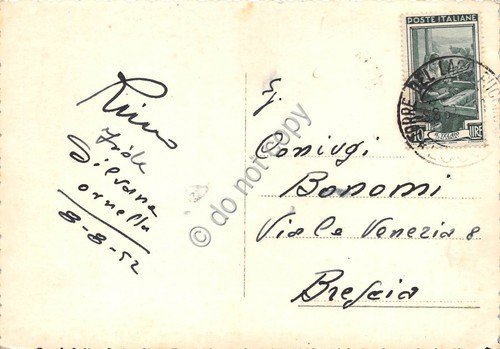 Rino
Isole
Silvana
ornella
8-8-52
POSTE ITALIANE
LIRE
TORRE DEL LA
do not copy
Coniugi
Bonomi
Viale Venezia 8
Brescia